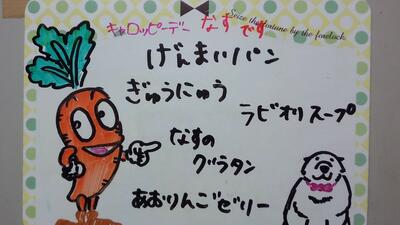 キャロッピーデー なすです
Seize the fortune by the forelock.
げんまいパン
ぎゅうにゅう
ラビオリスープ
なすの
グラタン
あおりんごゼリー